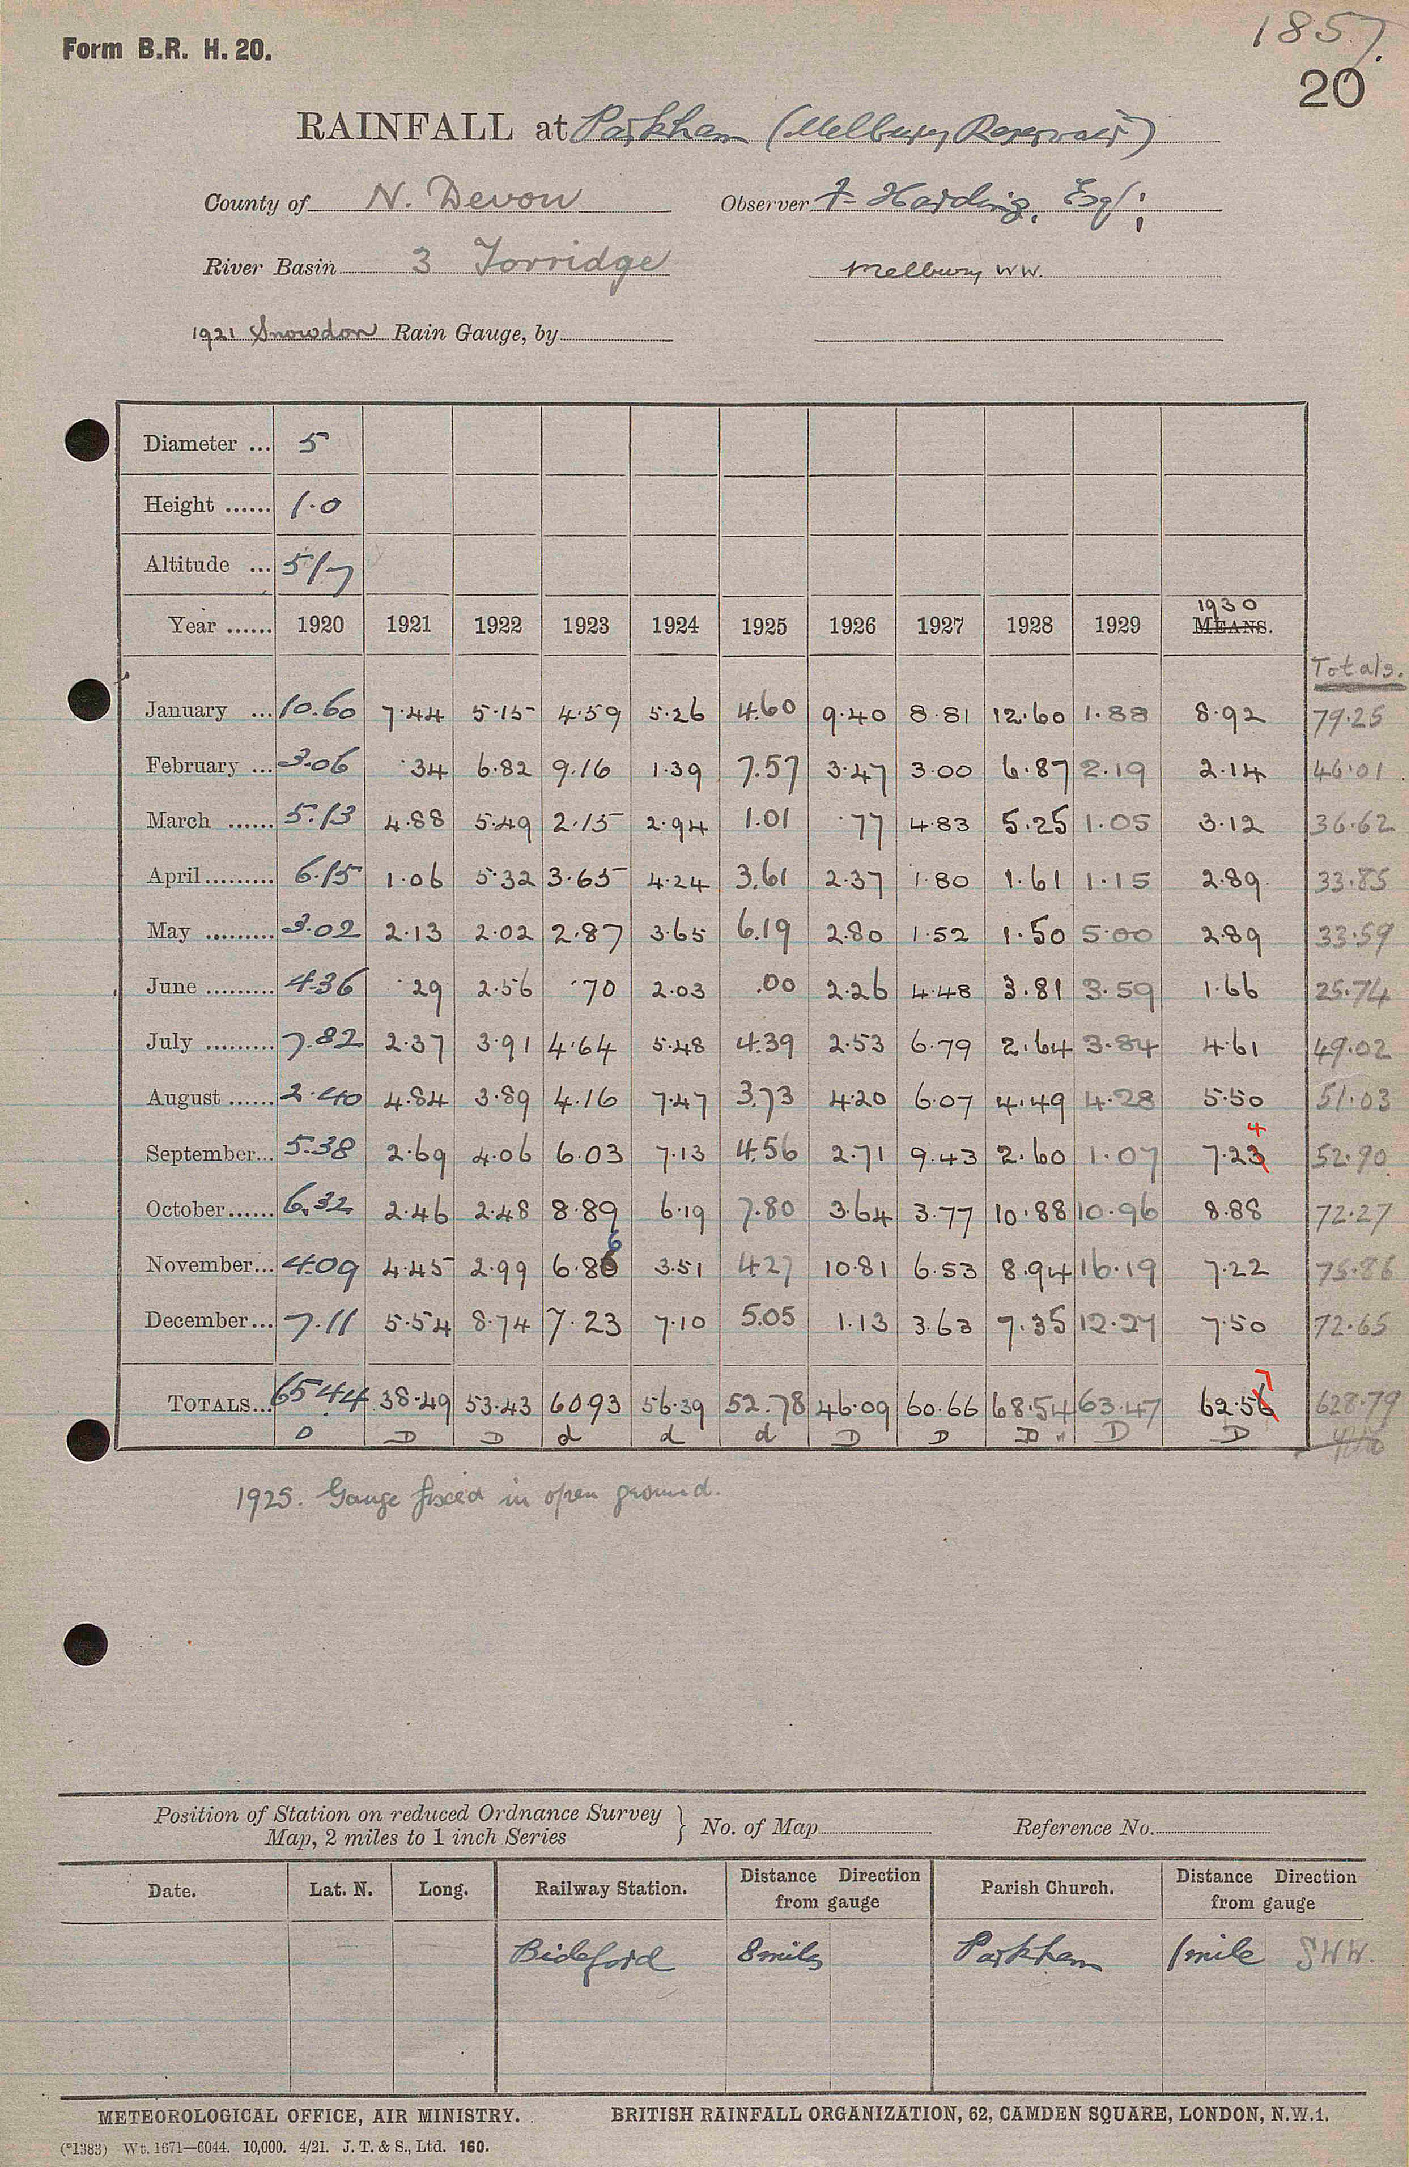 1857.
Form B.R. H. 20.
20
RAINFALL at Parkham (Melbury Reservoir)
County of N. Devon Observer F Harding, Esq!;
River Basin 3 Torridge Melbury WW.
1921 Snowdon Rain Gauge, by
Diameter ... 5
Height ...... 1.0
Altitude ... 517
1930
Year ...... 1920 1921 1922 1923 1924 1925 1926 1927 1928 1929 MEANS.
Totals.
January ... 10.60 7.44 5.15 4.59 5.26 4.60 9.40 8.81 12.60 1.88 8.92 79.25
February ... 3.06 .34 6.82 9.16 1.39 7.57 3.47 3.00 6.87 2.19 2.14 46.01
March ...... 5.13 4.88 5.49 2.15 2.94 1.01 .77 4.83 5.25 1.05 3.12 36.62
April ......... 6.15 1.06 5.32 3.65 4.24 3.61 2.37 1.80 1.61 1.15 2.89 33.85
May ......... 3.02 2.13 2.02 2.87 3.65 6.19 2.80 1.52 1.50 5.00 2.89 33.59
June ......... 4.36 .29 2.56 .70 2.03 .00 2.26 4.48 3.81 3.59 1.66 25.74
July ......... 7.82 2.37 3.91 4.64 5.48 4.39 2.53 6.79 2.64 3.84 4.61 49.02
August ...... 2.40 4.84 3.89 4.16 7.47 3.73 4.20 6.07 4.49 4.28 5.50 51.03
4
September... 5.38 2.69 4.06 6.03 7.13 4.56 2.71 9.43 2.60 1.07 7.23 52.90
October...... 6.32 2.46 2.48 8.89 6.19 7.80 3.64 3.77 10.88 10.96 8.88 72.27
6
November... 4.09 4.45 2.99 6.86 3.51 4.27 10.81 6.53 8.94 16.19 7.22 75.86
December... 7.11 5.54 8.74 7.23 7.10 5.05 1.13 3.63 7.35 12.27 7.50 72.65
7
TOTALS... 65.44 38.49 53.43 60.93 56.39 52.78 46.09 60.66 68.54 63.47 62.56 628.79
D D D d d d D D D " D D
1925. Gauge fixed in open ground.
Position of Station on reduced Ordnance Survey
Map, 2 miles to 1 inch Series } No. of Map Reference No.
Date. Lat. N. Long. Railway Station. Distance Direction from gauge Parish Church. Distance Direction from gauge
Bideford 8 miles Parkham 1 mile SWW.
METEOROLOGICAL OFFICE, AIR MINISTRY. BRITISH RAINFALL ORGANIZATION, 62, CAMDEN SQUARE, LONDON, N.W.1.
(*1383) Wt. 1671—6044. 10,000. 4/21. J. T. & S., Ltd. 160.